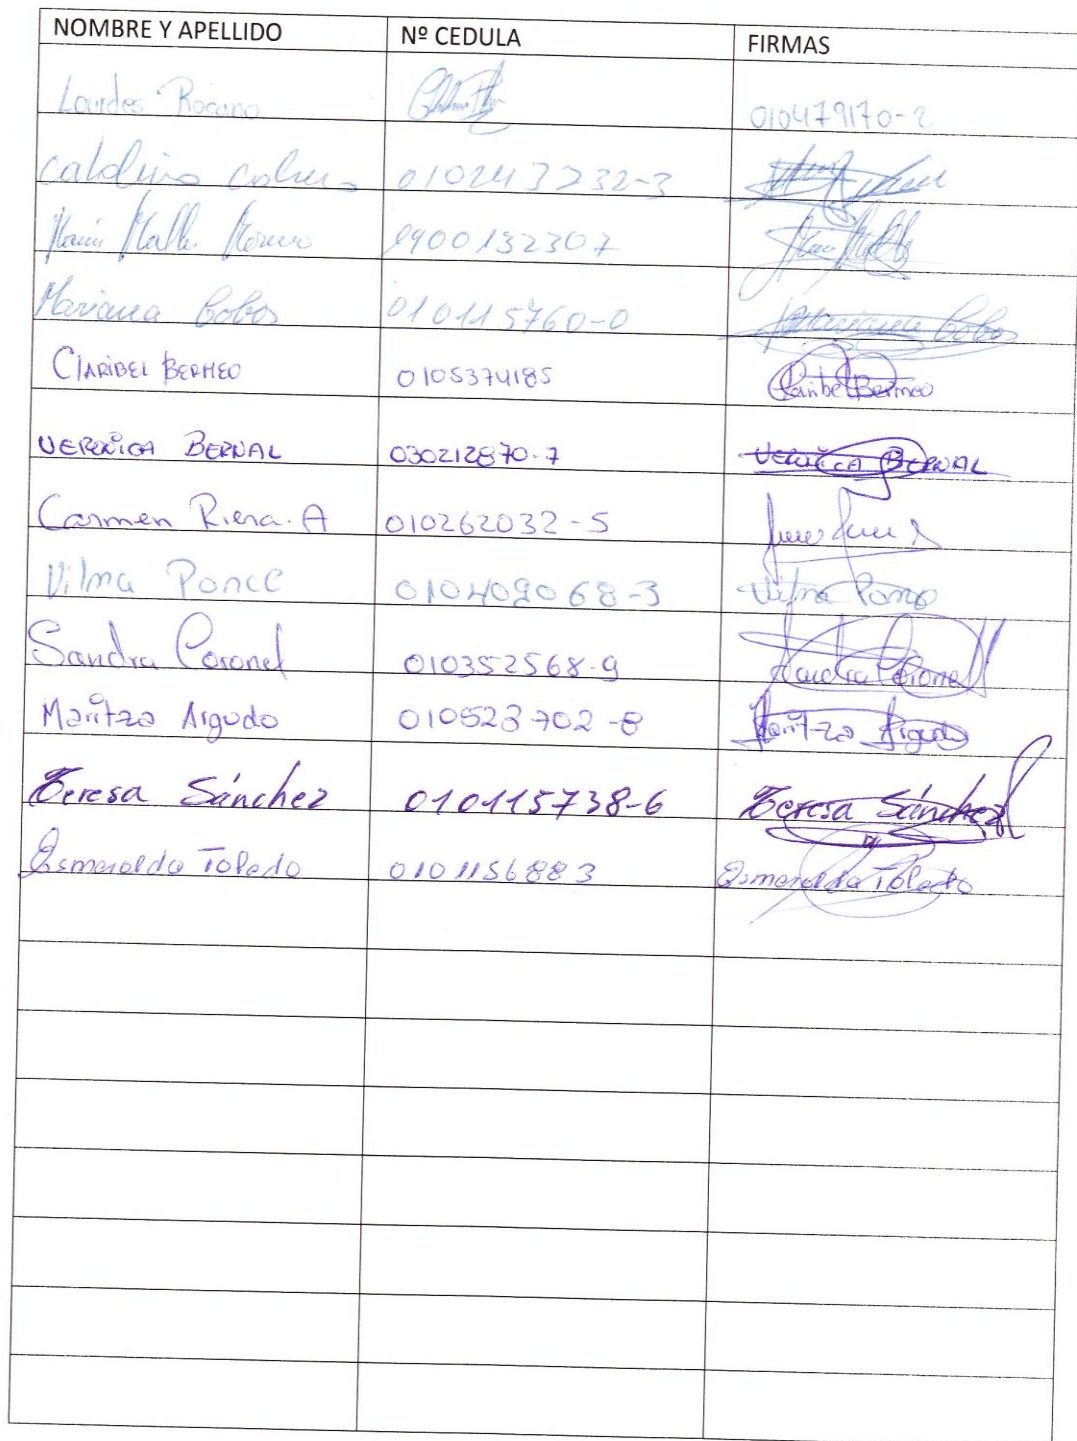 NOMBRE Y APELLIDO Nº CEDULA FIRMAS
Lourdes Rocano 010479170-2
010243232-3
0900132307
Mariana Cobos 010115760-0 Mariana Cobos
CLARIBEL BERMEO 0105374185 Claribel Bermeo
VERONICA BERNAL 030212870-7 VERONICA BERNAL
Carmen Riera. A 010262032-5
Vilma Ponce 010409068-3 Vilma Ponce
Sandra Coronel 010352568-9 Sandra Coronel
Maritza Argudo 010523702-8 Maritza Argudo
Teresa Sánchez 010115738-6 Teresa Sánchez
Esmeralda Toledo 0101156883 Esmeralda Toledo